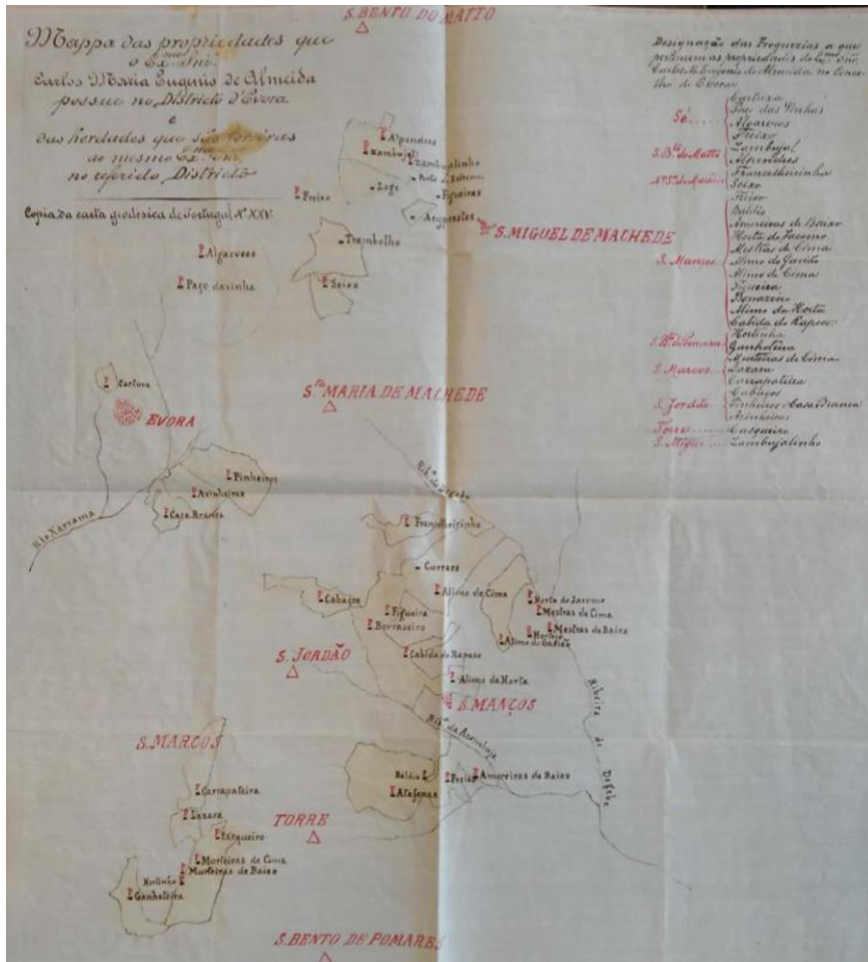 S. BENTO DO MATTO
Mappa das propriedades que
o Ex.mo Snr.
Carlos Maria Eugenio de Almeida
possue no Districto d'Evora
e
das herdades que são foreiras
ao mesmo Ex.mo Snr.
no referido Districto
Copia da carta geodesica de Portugal Nº XXV.
Designação das Freguezias a que
pertencem as propriedades do Ex.mo Snr.
Carlos M. Eugenio de Almeida no Concelho
de Evora:
Sé
Cartuxa
Paço das Vinhas
Algarvees
Freixo
S. B.to do Matto
Zambujal
Alpendres
Franculheirinha
Seixo
S. Manços
Baldio
Amoreiras de Baixo
Horta do Jacomo
Mestras de Cima
Alimo do Gavião
Alimo de Cima
Figueira
Alimo da Horta
Cabida do Raposo
Hortinha
Ganhoteira
S. Marcos
Murteiras de Cima
Lazara
Carrapateira
S. Jordão
Cabaços
Pinheiros e Casa Branca
Azinheiras
Torre
Casqueiro
S. Miguel
Zambujalinho
Alpendres
Zambujal
Zambujalinho
Freixo
Figueiras
Acyprestes
S. MIGUEL DE MACHEDE
Trambolho
Algarvees
Paço da vinha
Seixo
Cartuxa
EVORA
S.ta MARIA DE MACHEDE
Pinheiros
Azinheiras
Casa Branca
Rio Xarrama
Rib.ª do Digebe
Curraes
Alimo de Cima
Cabaços
Figueira
Horta do Jacomo
Mestras de Cima
Mestras de Baixo
Alimo do Gavião
Cabida do Raposo
S. JORDÃO
Alimo da Horta
S. MANÇOS
Ribeira do Digebe
S. MARCOS
Rib.ª da Azambuja
Baldio
Freixo
Amoreiras de Baixo
Atafonas
Carrapateira
Lazara
TORRE
Casqueiro
Murteiras de Cima
Murteiras de Baixo
Hortinha
Ganhoteira
S. BENTO DE POMARES